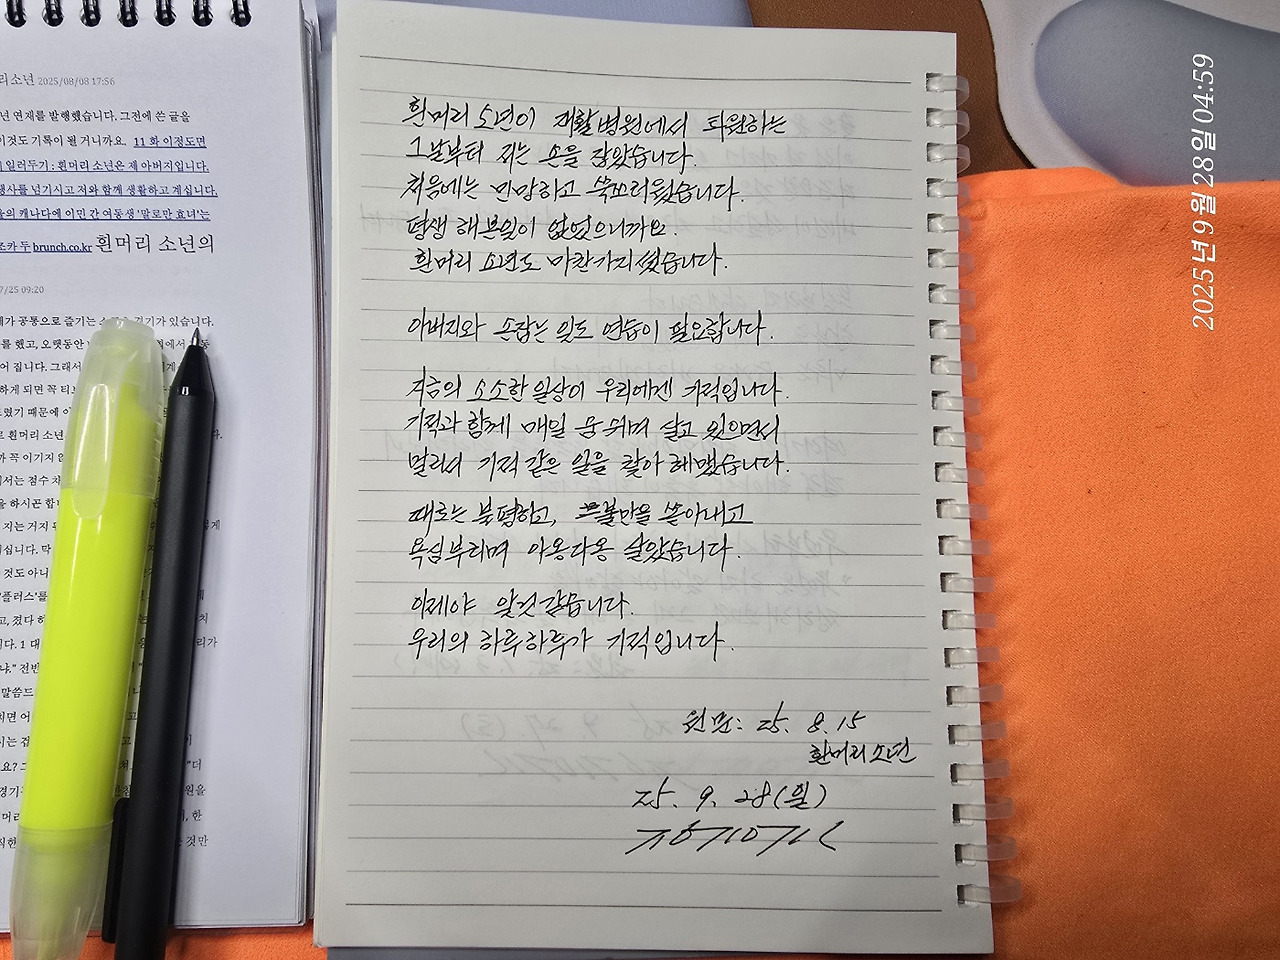 리소년 2025/08/08 17:56
년 연재를 발행했습니다. 그전에 쓴 글을
이것도 기록이 될 거니까요. 11화 이정도면
일러두기 : 흰머리 소년은 제 아버지입니다.
행사를 넘기시고 저와 함께 생활하고 계십니다.
의 캐나다에 이민 간 여동생 '말로만 효녀'는
조카 두 brunch.co.kr 흰머리 소년의
7/25 09:20
가 공통으로 즐기는
기가 있습니다.
를 했고, 오랫동안
어 집니다. 그래서
하게 되면 꼭 티브
렸기 때문에
흰머리 소년
꼭 이기지
서는 점수 차
을 하시곤 합
지는 거지
십니다. 막
것도 아니
'플러스'를
고, 졌다
다. 1 대
냐." 전반
말씀드
치면 어
시는 겁
요? 그
경기
머리
흰머리 소년이 재활병원에서 퇴원하는
그날부터 저는 손을 잡았습니다.
처음에는 민망하고 쑥쓰러웠습니다.
평생 해본일이 없었으니까요.
흰머리 소년도 마찬가지였습니다.
아버지와 손잡는 일도 연습이 필요합니다.
지금의 소소한 일상이 우리에겐 기적입니다.
기적과 함께 매일 숨 쉬며 살고 있으면서
멀리서 기적 같은 일을 찾아 헤맸습니다.
때로는 불평하고, 불만을 쏟아내고
욕심부리며 아옹다옹 살았습니다.
이제야 알것 같습니다.
우리의 하루하루가 기적입니다.
원문: 25. 8. 15
흰머리소년
25. 9. 28(일)
2025년 9월 28일 04:59